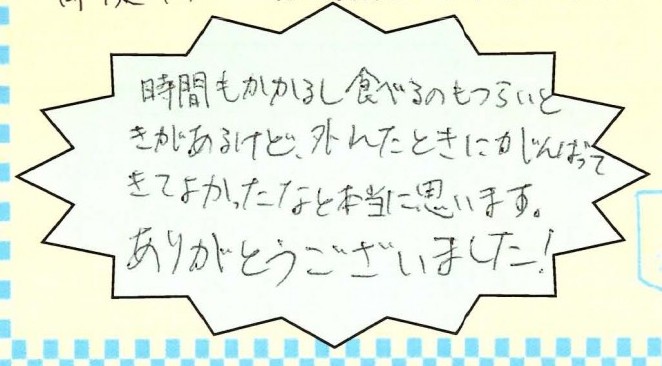 時間もかかるし食べるのもつらいと
きがあるけど、外れたときにがんばって
きてよかったなと本当に思います。
ありがとうございました!